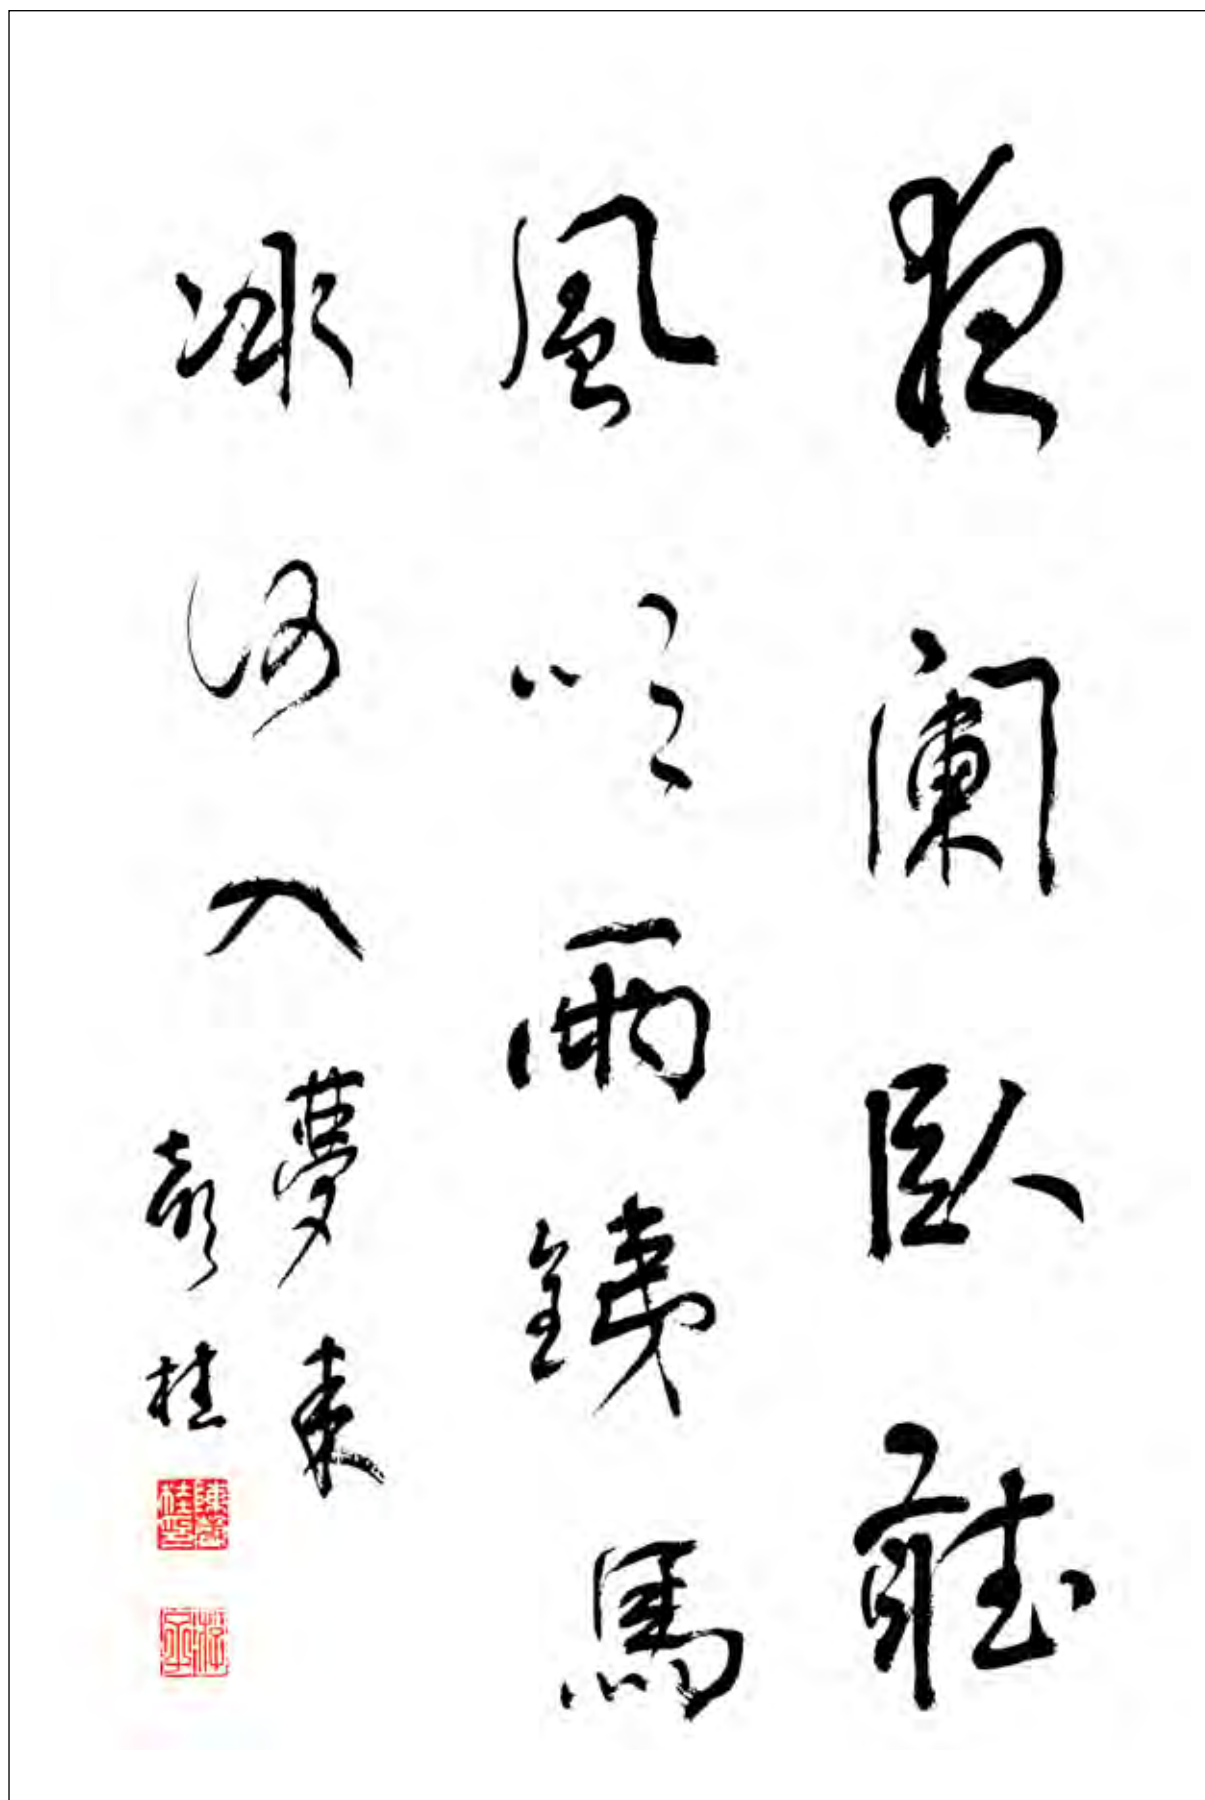 夜闌臥聽
風吹雨銕馬
冰河入夢來
桂